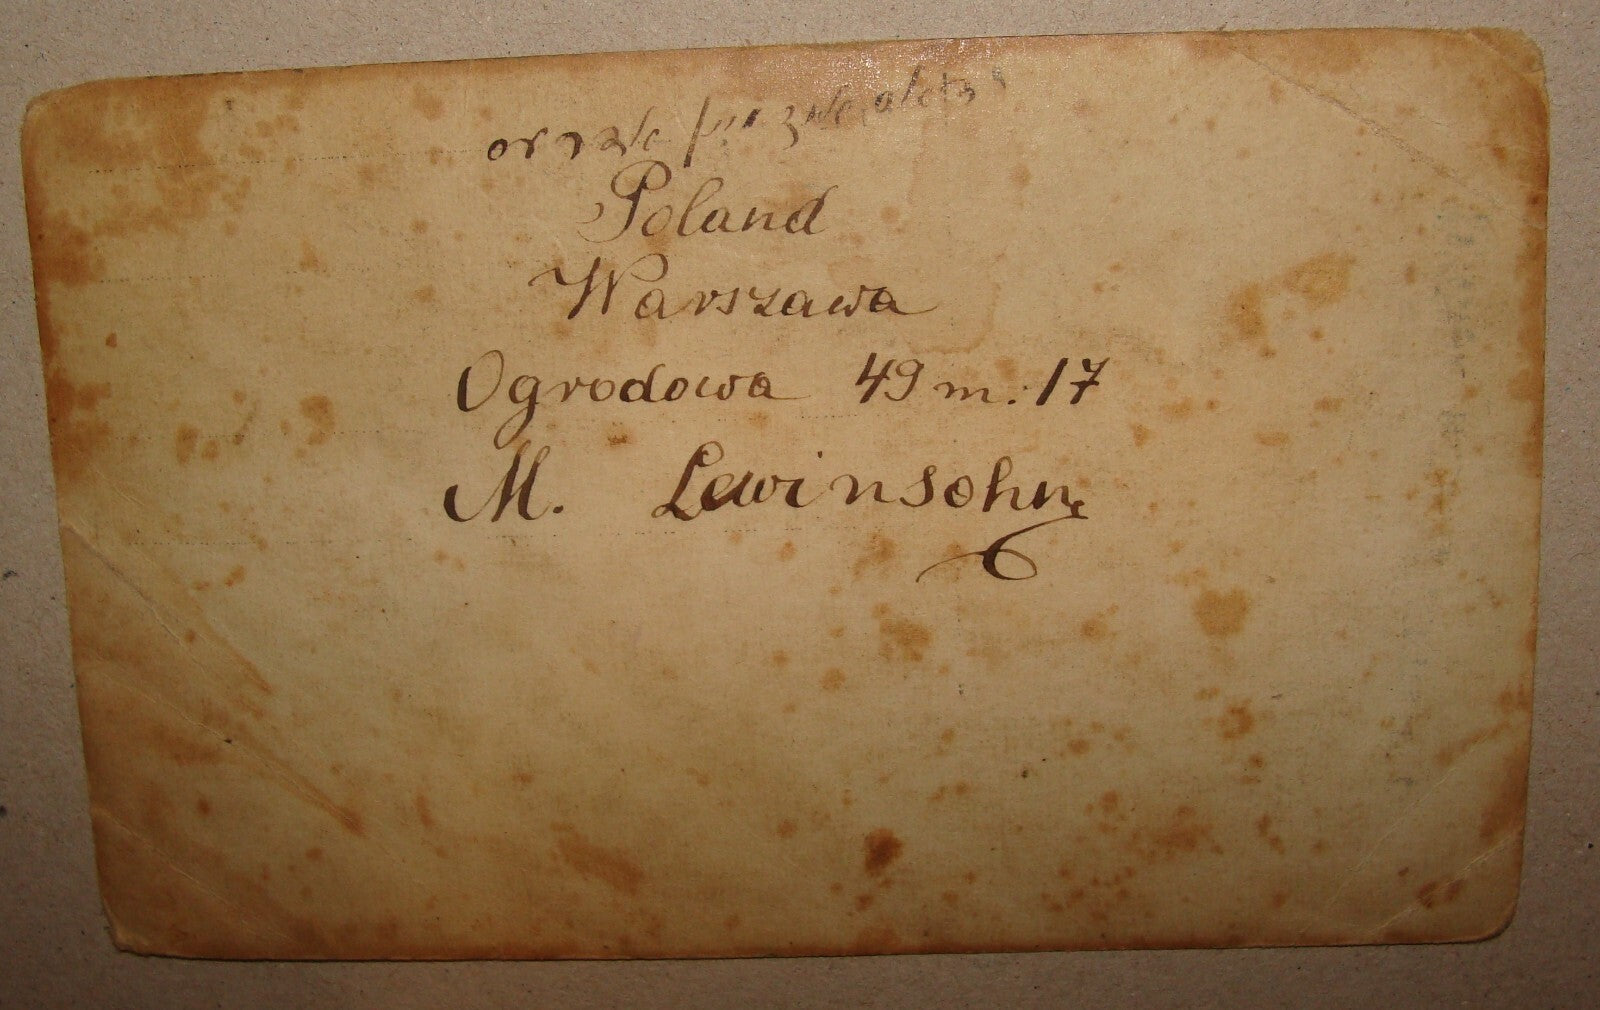 Poland
Warszawa
Ogrodowa 49 m. 17
M. Lewinsohn